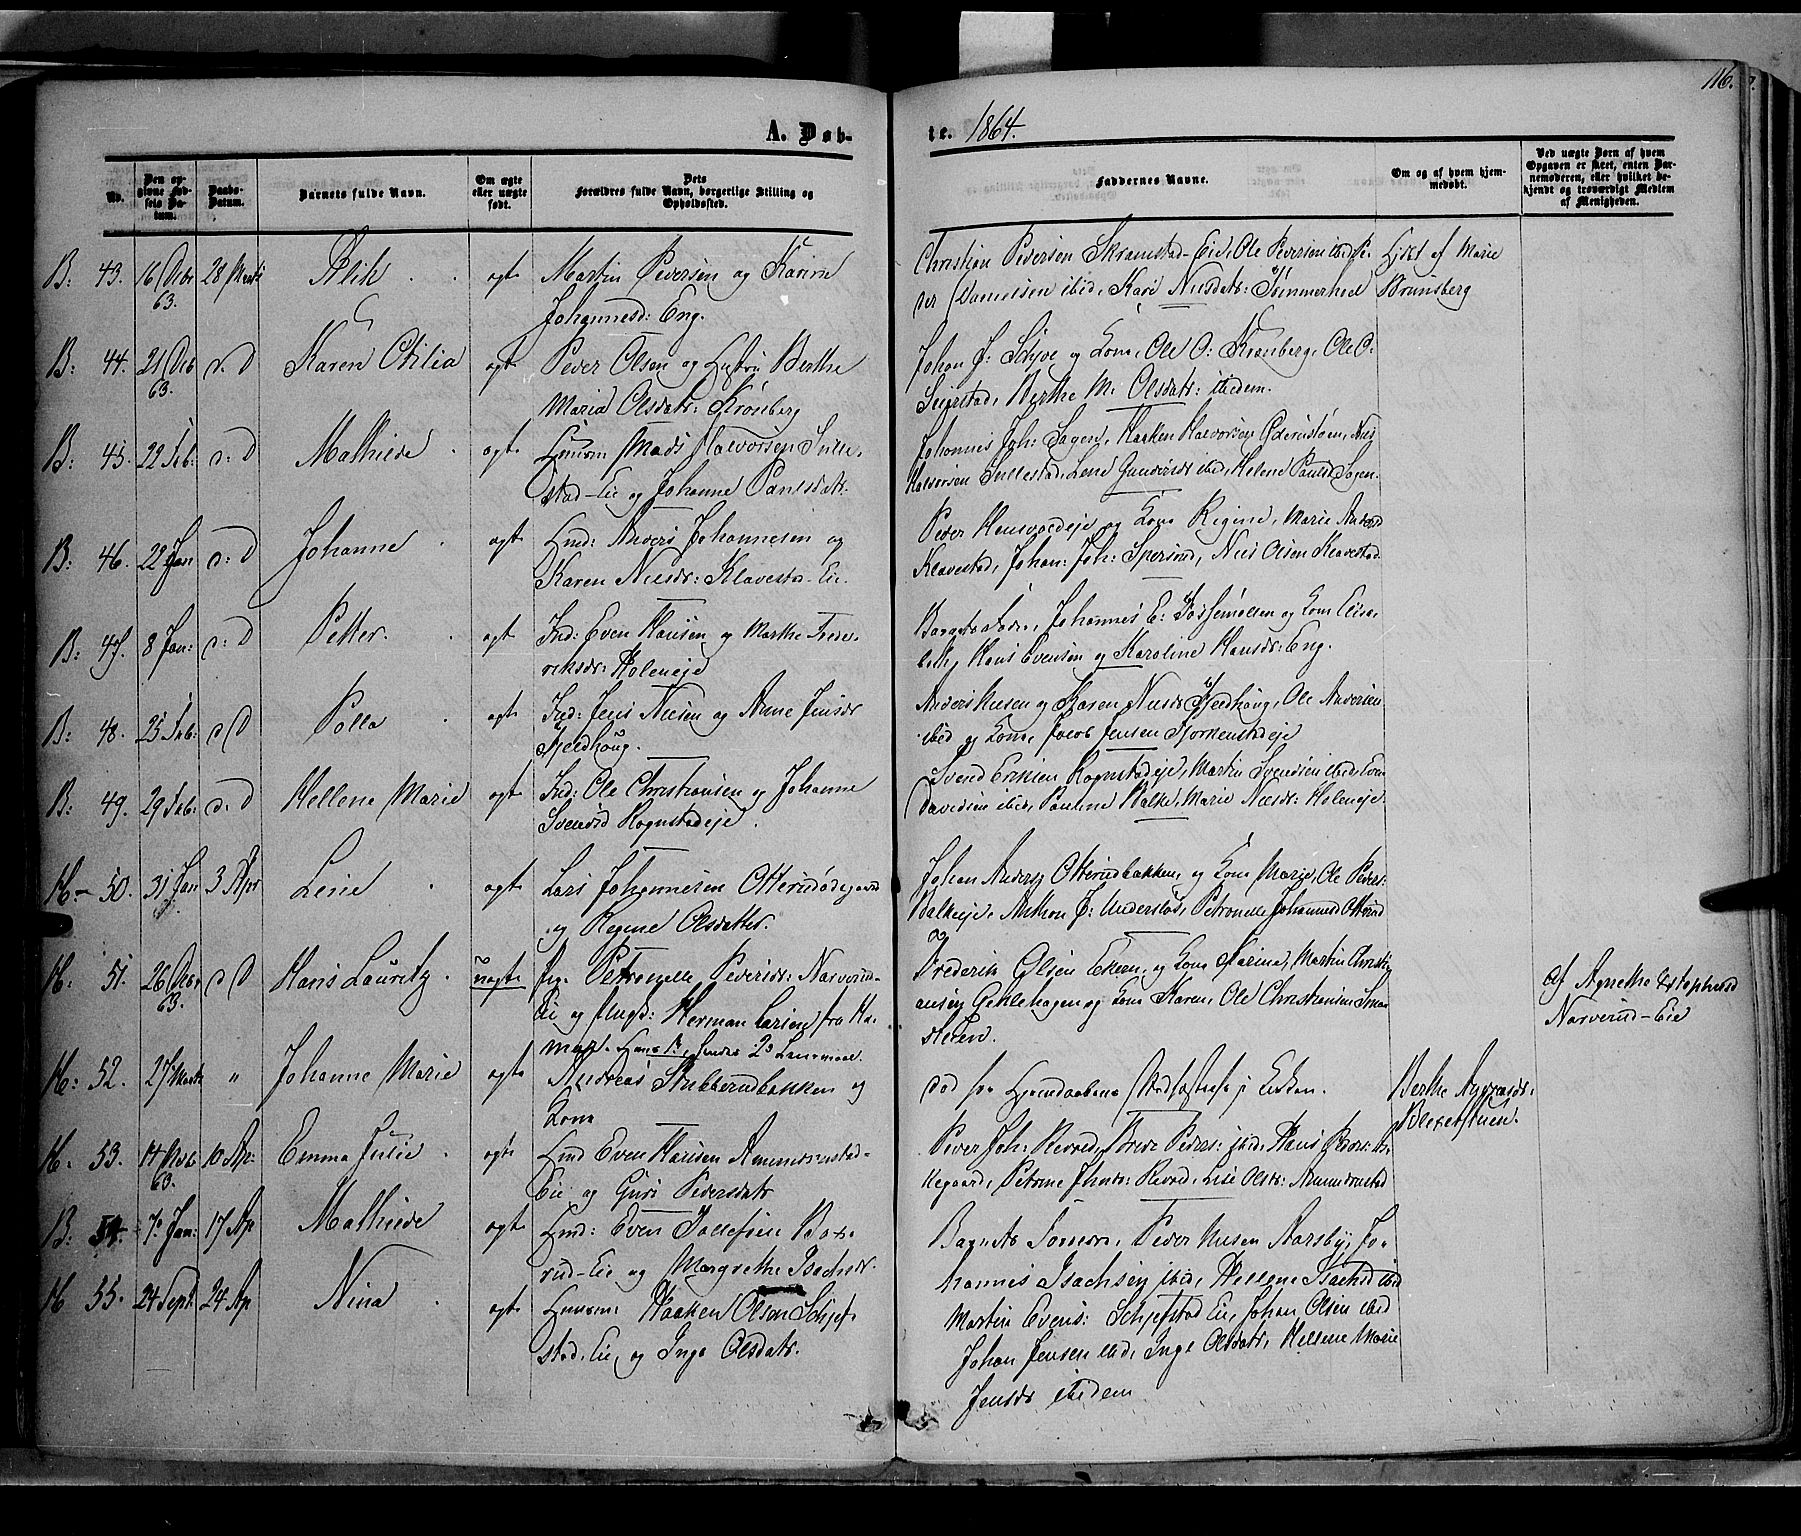 116.
A. Døb-
te. 1864.
No.
Den op-
givne Fød-
sels Da-
tum.
Daabs-
Datum.
Barnets fulde Navn.
Om ægte
eller uægte
født.
Dets
Forældres fulde Navn, borgerlige Stilling og
Opholdssted.
Faddernes Navne.
Om og af hvem hjem-
medøbt.
Ved uægte Børn af hvem
Opgaven er skeet, enten Bar-
nemoderen, eller hvilket be-
kjendt og troværdigt Medlem
af Menigheden.
B: 43. 16 Dcbr 63. 28 Marts
ægt Martin Pedersen og Karine
Johannesd: Eng.
Christian Pedersen Skramstad-Eie, Ole Pedersen ibid Pe-
der Danielsen ibid, Kari Nilsdatr: Tømmerhol
Hjdbt af Marie
Brunsberg
B: 44. 21 Dcb 63. d: D Karen Otilia ægt Peder Olsen og Hustru Berthe
Maria Olsdatr: Kronberg
Johan J: og Kone, Ole O: Kronberg, Ole O.
Seigstad, Berthe M. Olsdatr: ibidem.
B: 45. 22 Feb: d: D Mathilde ægt Huusm Mads Halvorsen Sulle-
stad-Eie og Johanne Paulsdatr:
Johannes Joh: Sagen, Haaken Halvorsen
Halvorsen Sullestad, Lene Gundersdr ibid, Helene Paulsd Sagen
B: 46. 22 Jan d: D Johanne ægt Hmd: Anders Johannesen og
Karen Nilsdr: Klavestad-Eie.
Peder og Kone Regine, Marie Andersd
Klavestad, Johan: Joh: Nils Olsen Klavestad
B: 47. 8 Jan: d: D Petter ægt Ind: Even Hansen og Marthe Frede-
riksdr: Holeneje
Barnets Fader, Johannes E: Fossemøllen og Kone Elisa-
beth, Hans Evensen og Karoline Hansdr: Eng.
B: 48. 25 Feb: d D ægt Ind: Jens Nilsen og Anne Jensdr
Fjeldhoug.
Anders Nilsen og Karen Nilsdr Fjeldhoug, Ole Andersen
ibid og Kone, Jacob Jensen
B: 49. 29 Feb: d: D Hellene Marie ægt Ind: Ole Christiansen og Johanne
Svensd Rognstadeje
Svend Eriksen Rognstadeje, Martin Svendsen ibid, Even
Davidsen ibid, Pauline Balke, Marie Nilsdr: Holeneje
H- 50. 31 Jan 3 Apr Lene ægt Lars Johannesen Otterudødegaard
og Regine Olsdatter.
Johan Anders Otterudbakken og Kone Marie, Ole Peders:
Balkeje, Anthon J: Petronelle Johannesd Otterud
H. 51. 26 Dcbr 63. d D Hans Lauritz uægt Pig. Petronelle Pedersdr: Narverud-
Eie og Ungk: Herman Larsen fra Ha-
mar. Hans 1ste, hendes 2d Leiermaal
Frederik Olsen Ekern og Kone Karine, Martin Christi-
ansen Gehlehagen og Kone Karen, Ole Christiansen
af Agnethe Christophersd
Narverud-Eie
H: 52. 27 Marts " Johanne Marie ægt Andreas Stubberudbakken og
Kone
død før Hjemdaabens Stadfæstelse i Kirken.
Berthe Andreasdr:
H. 53. 14 Nvb 63. 10 Ap: Emma Julie ægt Hmd Even Hansen Ammerudstad-
Eie og Guri Pedersdatr
Peder Joh: Revod, Peders: ibid, Hans Peders:
Petrine Johnsd: Revod, Lise Olsdr: Ammundrustad
B: 54. 7 Jan: 17 Ap Mathilde ægt Hmd: Even Tollefsen
rud-Eie og Margrethe Isachsdr:
Barnets Peder Nilsen Aarsby, Jo-
hannes Isachsen ibid, Hellene Isachsd ibid
H 55. 24 Sept. 24 Ap Nina ægt Huusm: Haaken Olsen Schjef-
stad-Eie og Inge Olsdatr.
Martin Evens: Schjefstad Eie, Johan Olsen ibid
Johan Jensen ibid, Inge Olsdatr, Hellene Marie
Jensdr ibidem